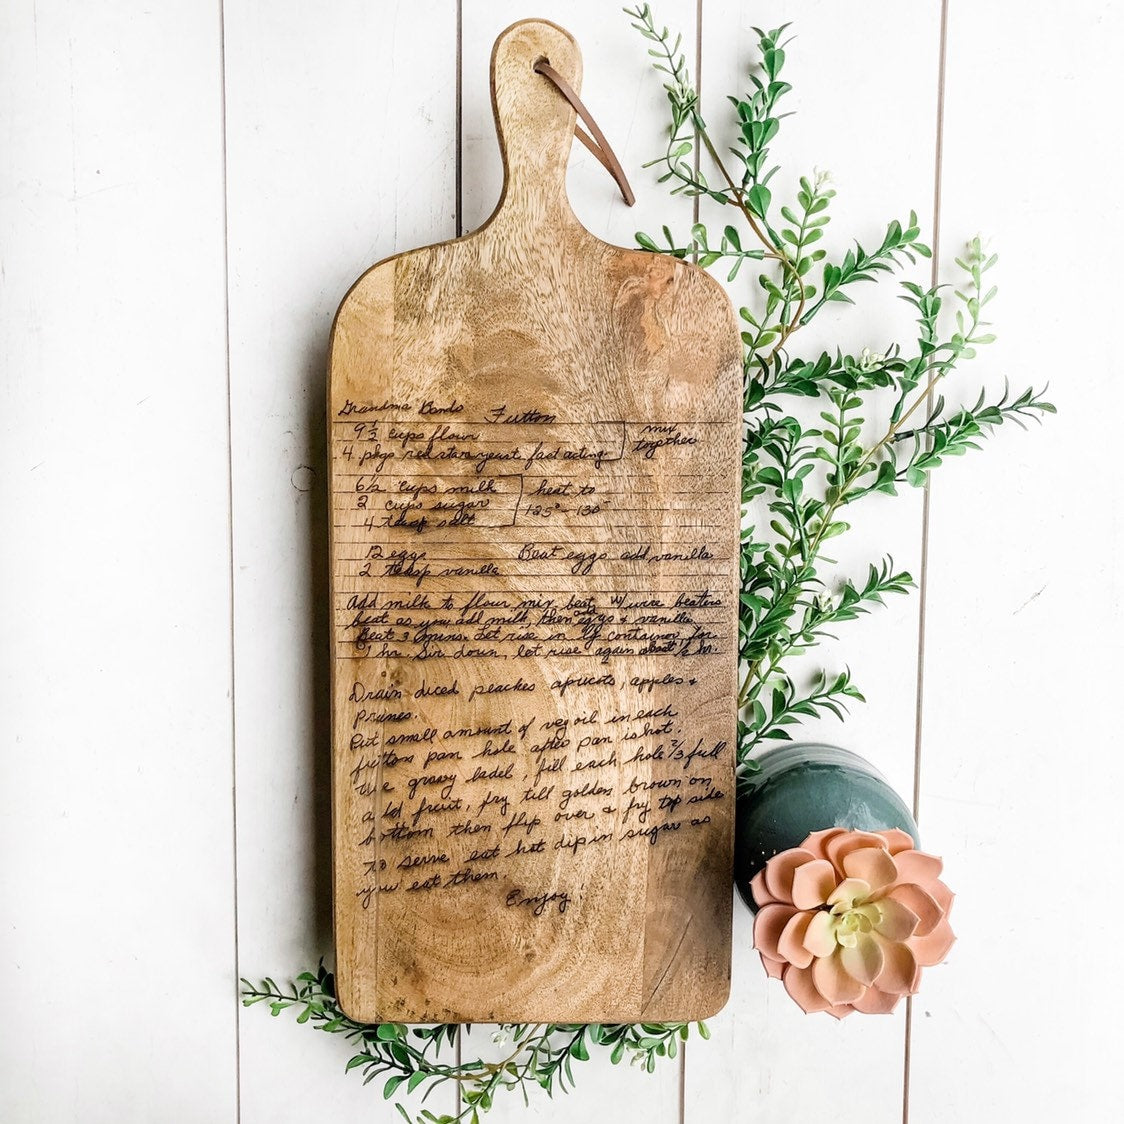 Grandma Bonds Futton
9 1/2 cups flour
4 pkgs red star yeast fast acting
mix
together
6 1/2 cups milk
2 cups sugar
4 teasp salt
heat to
125° - 130°
12 eggs
2 teasp vanilla
Beat eggs add vanilla
Add milk to flour mix, beat w/ wire beaters
beat as you add milk, then add eggs + vanilla,
Beat 3 mins. Let rise in lg container, for
1 hr. Stir down, let rise again about 1/2 hr.
Drain diced peaches apricots, apples +
prunes.
Put small amount of veg oil in each
futton pan hole after pan is hot.
Use gravy ladel, fill each hole 2/3 full
add fruit, fry till golden brown on
bottom then flip over & fry top side
To serve eat hot dip in sugar as
you eat them.
Enjoy!